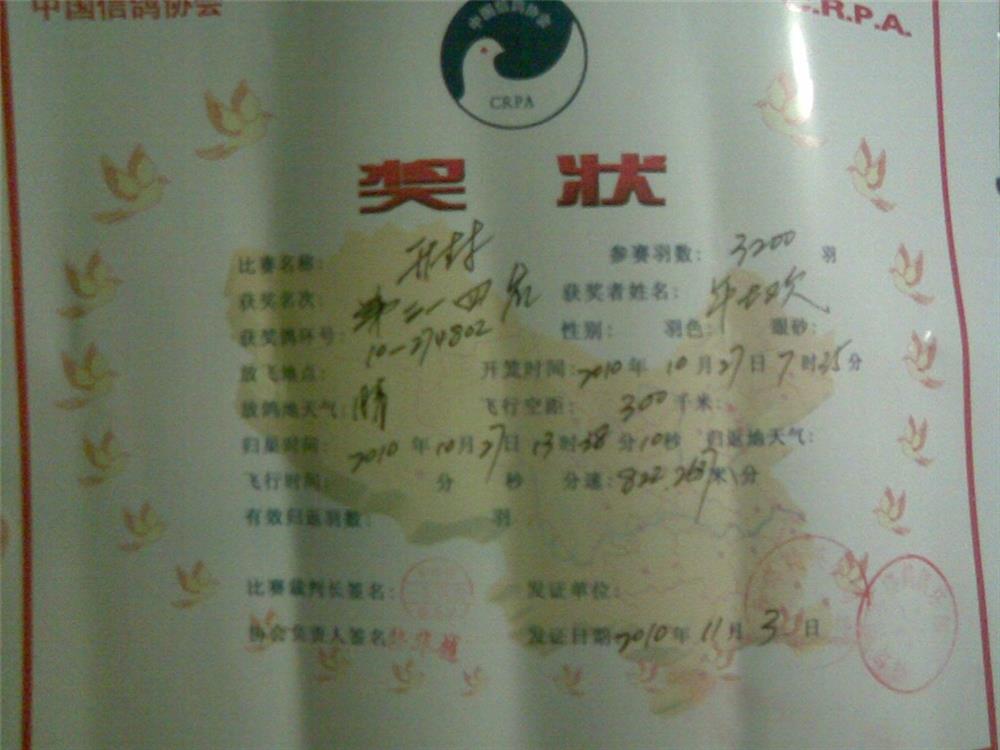 中国信鸽协会
C.R.P.A.
中国信鸽协会
CRPA
奖 状
比赛名称: 开封 参赛羽数: 3200 羽
获奖名次: 第二一四名 获奖者姓名:
获奖鸽环号: 10-274802 性别: 羽色: 眼砂:
放飞地点: 开笼时间: 2010 年 10 月 27 日 7 时 35 分
放鸽地天气: 晴 飞行空距: 300 千米:
归巢时间: 2010 年 10 月 27 日 13 时 38 分 10 秒 归返地天气:
飞行时间: 分 秒 分速: 822.2637 米\分
有效归返羽数: 羽
比赛裁判长签名: 发证单位:
协会负责人签名 发证日期 2010 年 11 月 3 日